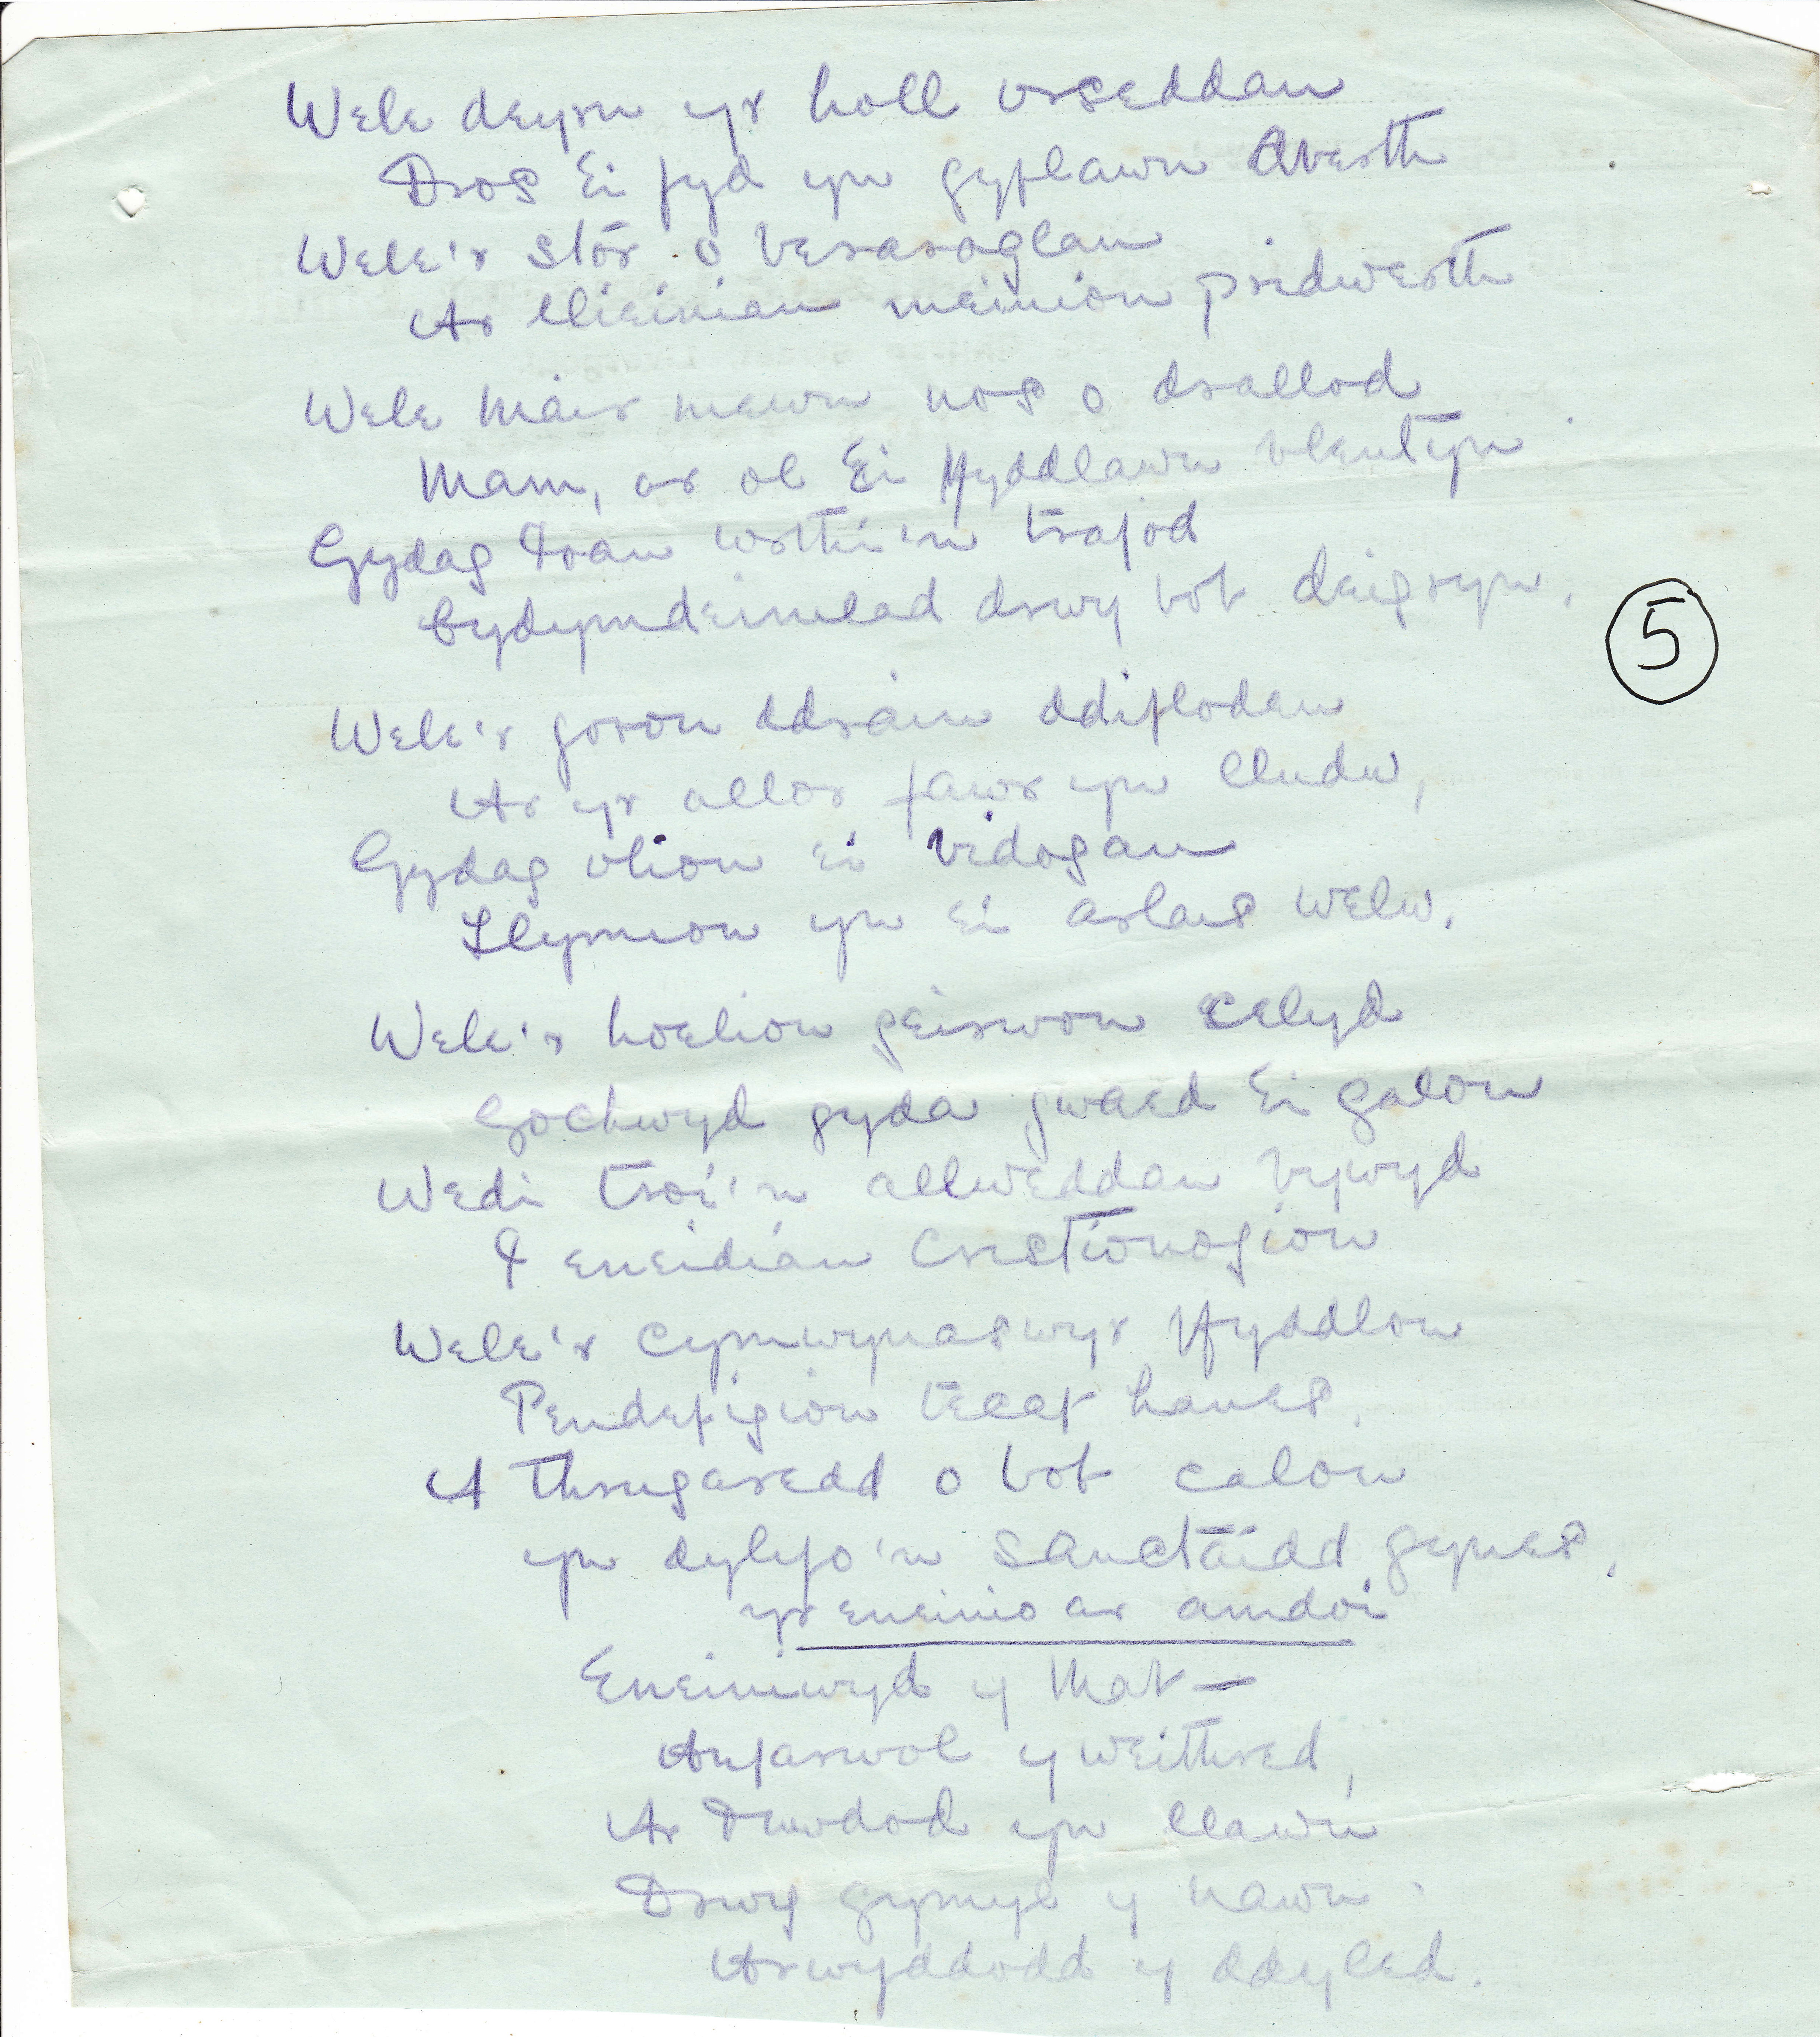 Wele deyrn yr holl orseddau
Dros Ei fyd yn gyflawn Aberth
Wele'r stôr o beraroglau
Ar llieiniau meinion pridwerth
Wele Mair mewn nos o drallod
Mam, ar ol Ei ffyddlawn blentyn
Gydag Ioan wrthi'n trafod
Cydymdeimlad drwy bob deigryn.
Wele'r goron ddrain ddiflodau
Ar yr allor fawr yn lludw,
Gydag olion ei bidogau
Llymion yn Ei arlais welw.
Wele'r hoelion geirwon celyd
Gochwyd gyda gwaed Ei galon
Wedi troi'n allweddau bywyd
I eneidiau Cristionogion
Wele'r cymwynaswyr ffyddlon
Pendefigion tecaf hanes.
A thrugaredd o bob calon
yn dylifo'n sanctaidd gynes.
yr eneinio ar amdoi
Eneiniwyd y Mab —
Anfarwol y weithred,
Ar Duwdod yn llawn
Drwy gymyl y nawn.
Arwyddodd y ddyled.
5